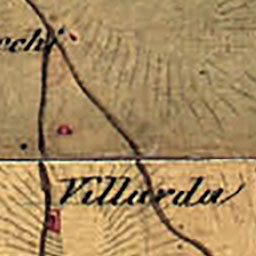 echi
Villarda